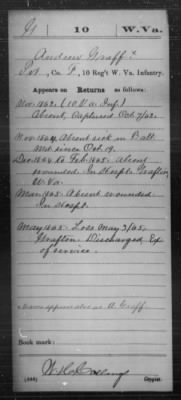 G 10 W.Va.
Andrew Graff
Pvt, Co. F, 10 Reg't W. Va. Infantry.
Appears on Returns as follows:
Nov 1862 (10 Va Inf.)
Absent, Captured Oct. 7/62.
Nov 1864 Absent sick in Balt
Md. since Oct. 19.
Dec 1864 to Feb 1865. Absent
wounded. In Hospl. Grafton
W. Va.
Mar 1865 Absent wounded
In Hospt.
May 1865 Loss May 3/65,
Grafton Discharged, Ex
of service.
Name appears also as A. Graff.
Book mark:
(546) Copyist.